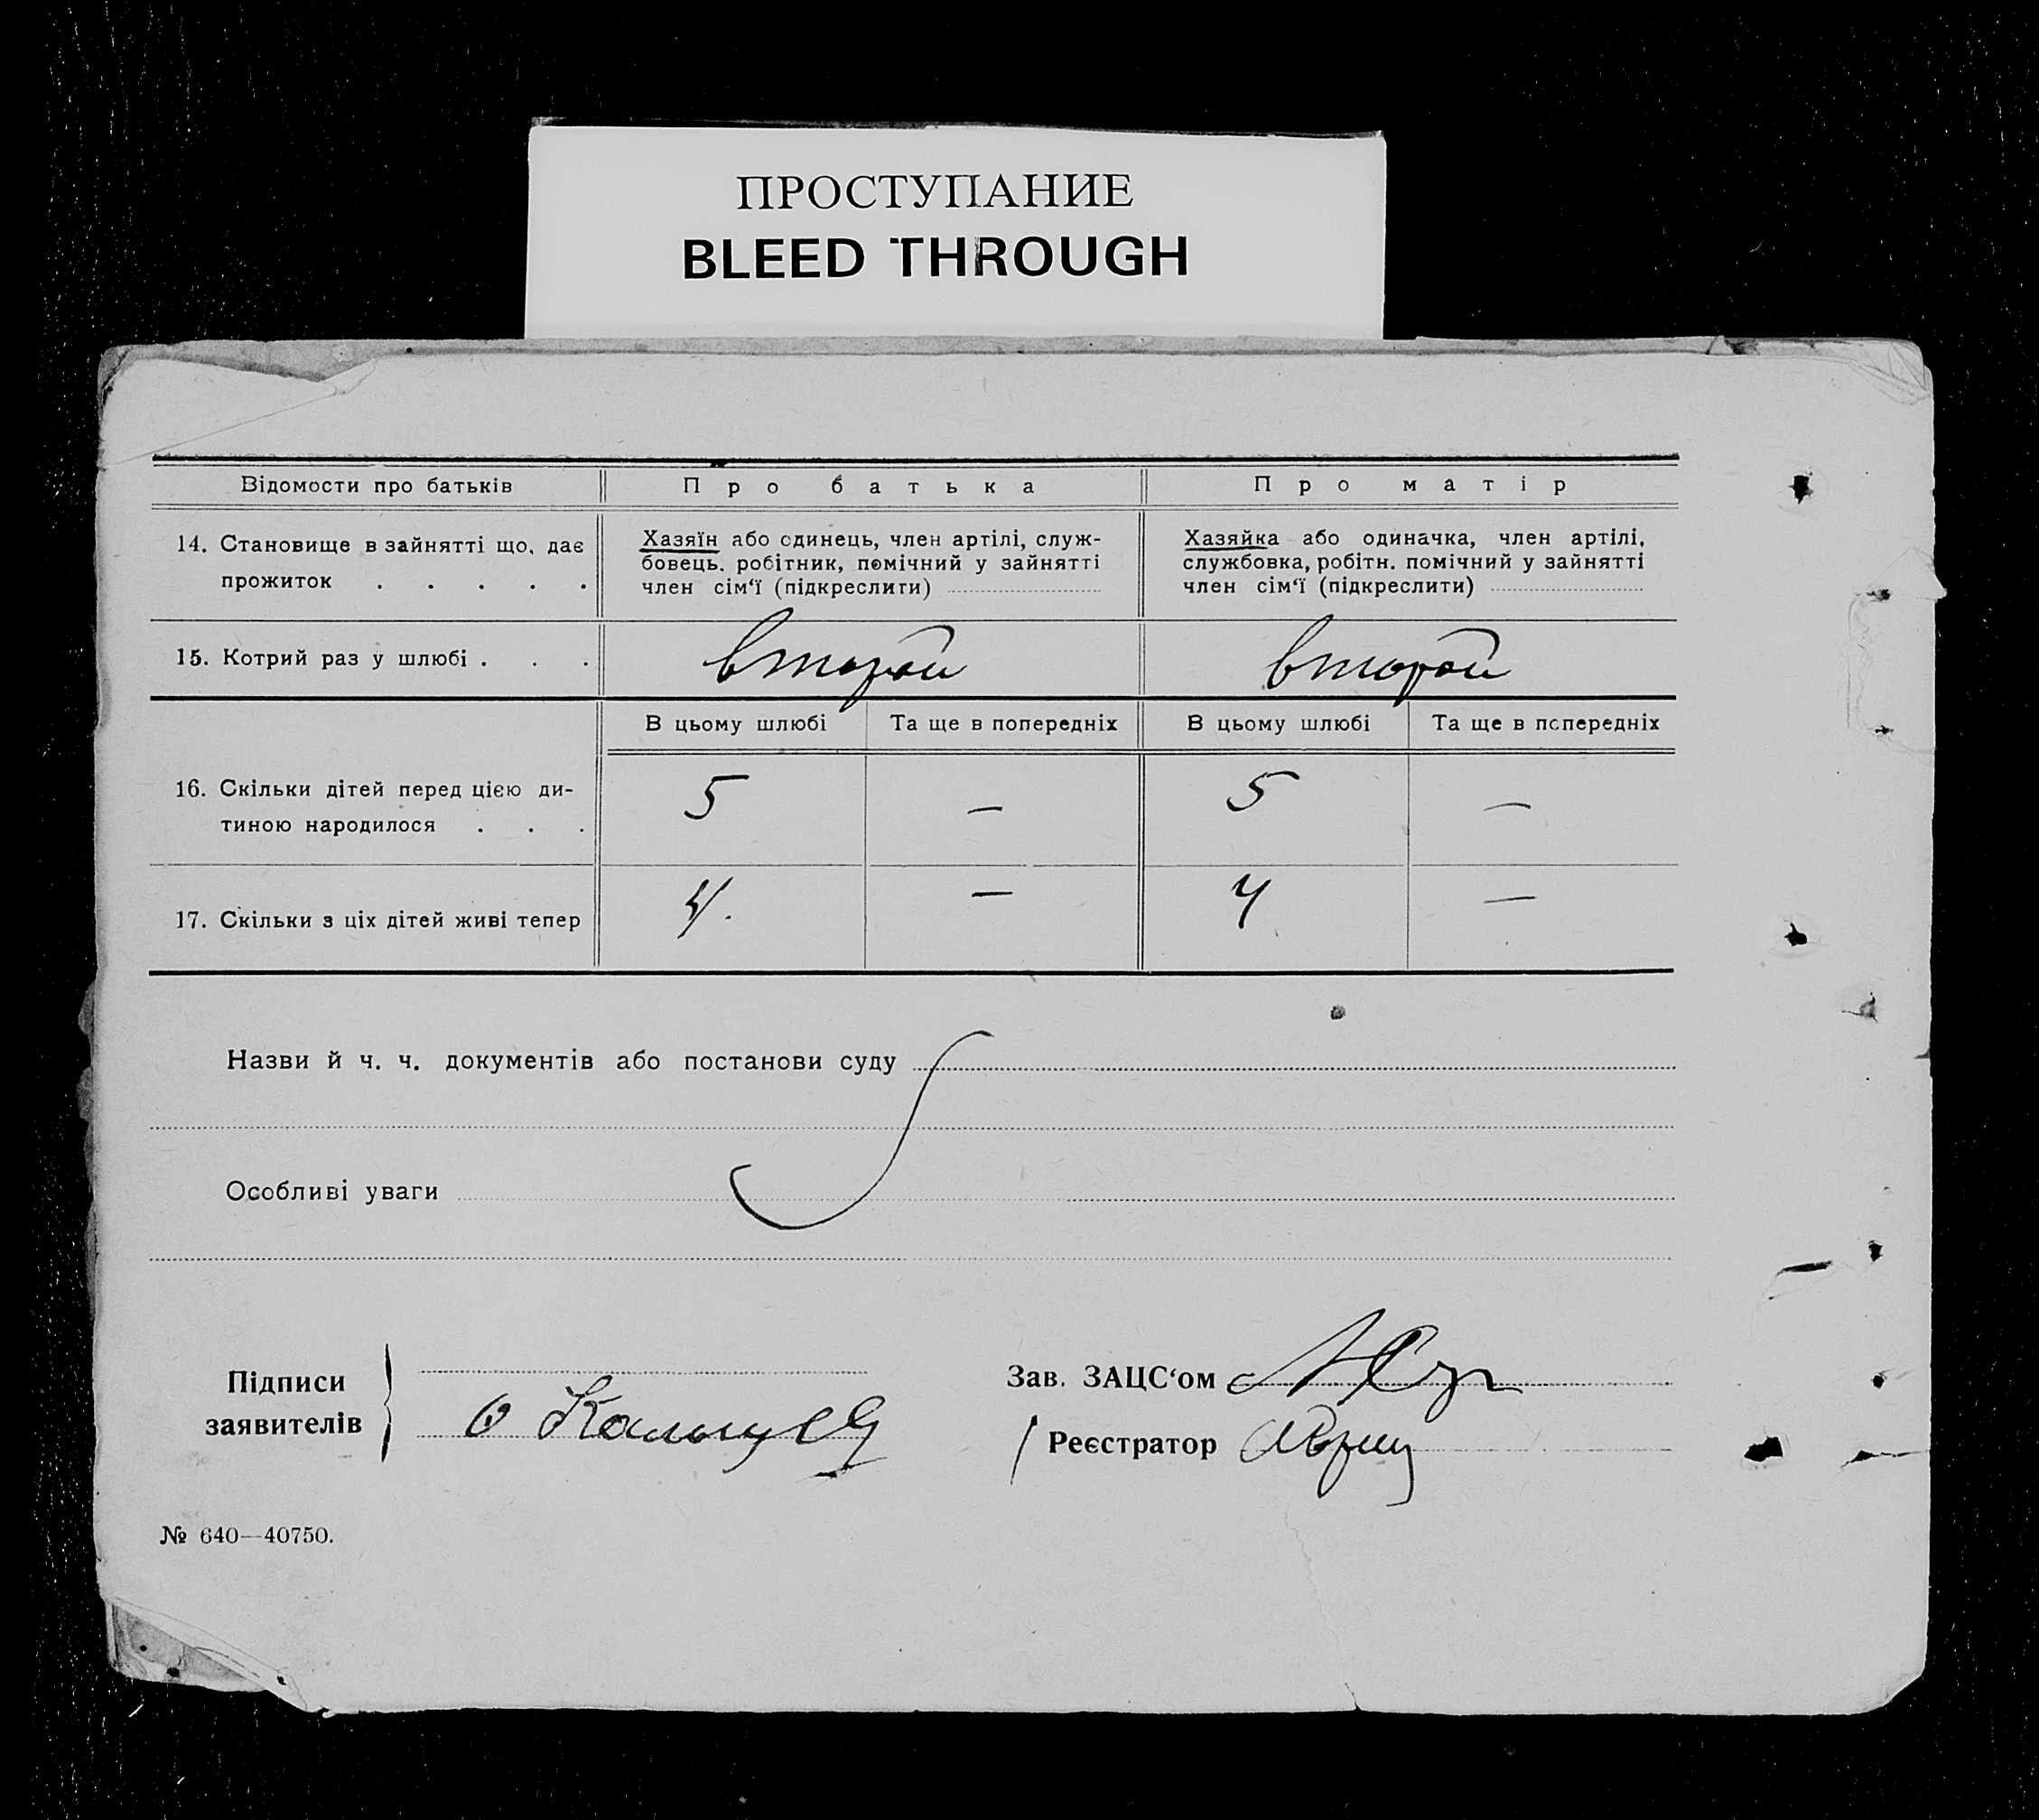 ПРОСТУПАНИЕ
BLEED THROUGH
Відомости про батьків
Про батька
Про матір
14. Становище в зайнятті що, дає
прожиток . . . . .
Хазяїн або одинець, член артілі, служ-
бовець. робітник, помічний у зайнятті
член сім‘ї (підкреслити)
Хазяйка або одиначка, член артілі,
службовка, робітн. помічний у зайнятті
член сім‘ї (підкреслити)
15. Котрий раз у шлюбі . . .
второй
второй
В цьому шлюбі
Та ще в попередніх
В цьому шлюбі
Та ще в попередніх
16. Скільки дітей перед цією ди-
тиною народилося . . .
5
—
5
—
17. Скільки з ціх дітей живі тепер
4.
—
4
—
Назви й ч. ч. документів або постанови суду
Особливі уваги
Підписи
заявителів
Зав. ЗАЦС‘ом
Реєстратор
№ 640—40750.